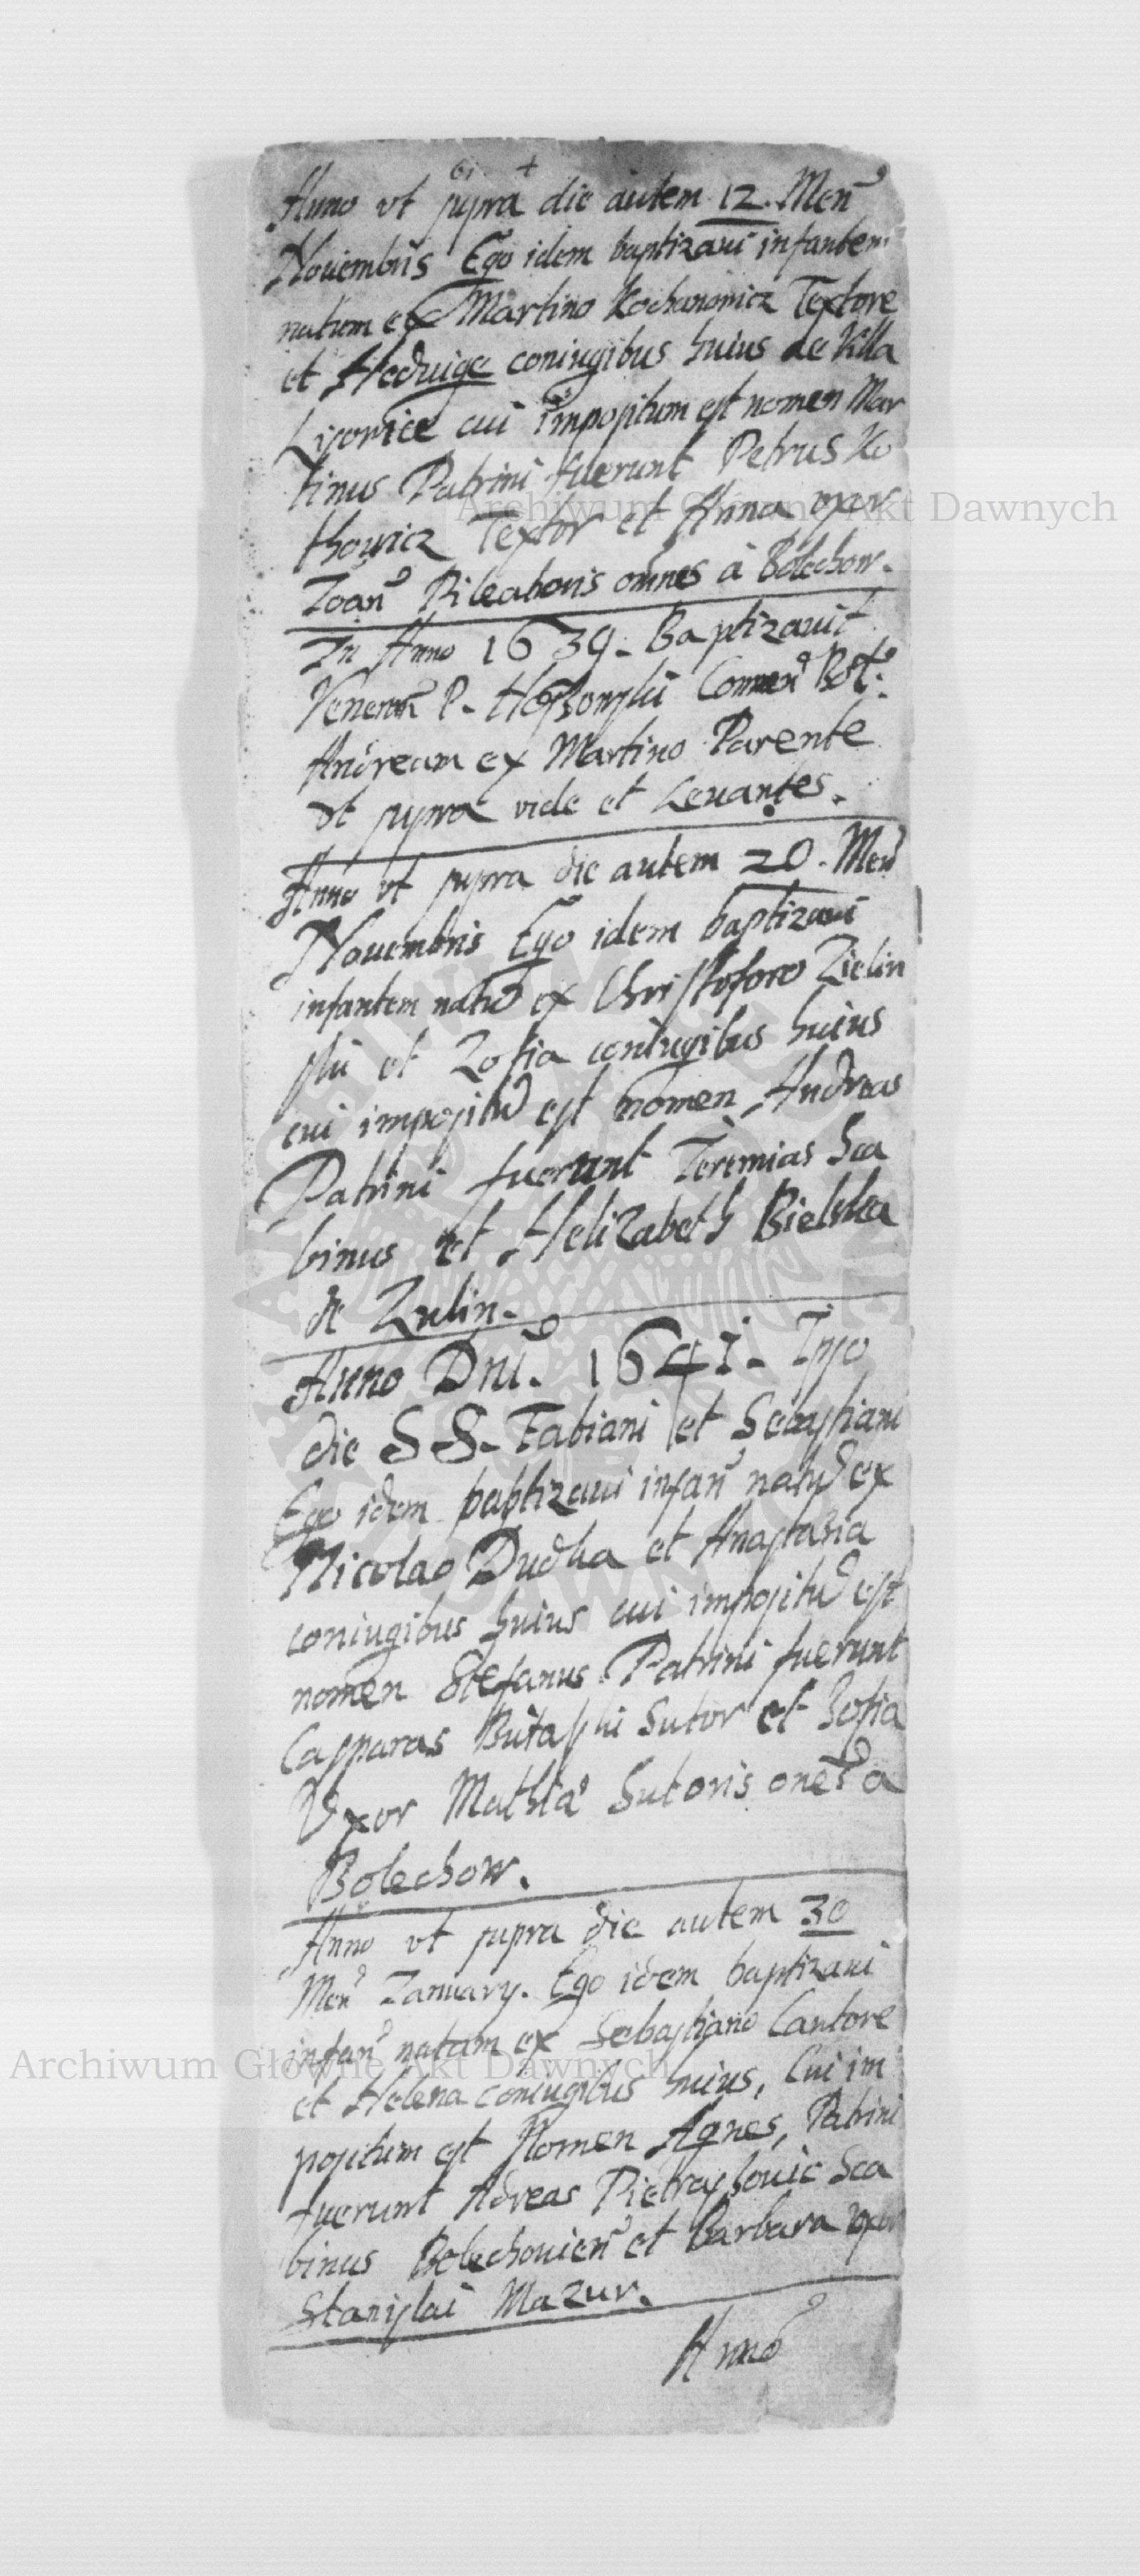 61 +
Anno vt supra die autem 12. Men
Nouembris Ego idem baptizaui infantem
natum ex Martino Kochanowicz Textore
et Hedvige coniugibus huius de Villa
Lisowice cui impositum est nomen Mar
tinus Patrini fuerunt Petrus Ko
thowicz Textor et Anna vxor
Joan Pileatoris omnes à Bolechow.
In Anno 1639. Baptizauit
P. Comen Bol:
Andream ex Martino Parente
vt supra vide et Leuantes.
Anno vt supra die autem 20. Men
Nouembris Ego idem baptizaui
infantem natu ex Christoforo Zielin
ski et Zofia coniugibus huius
cui impositu est nomen Andreas
Patrini fuerunt Jeremias Sca
binus et Helizabeth Bielska
de Zulin.
Anno Dni. 1641. Ipso
die SS. Fabiani et Sebastiani
Ego idem baptizaui infan natu ex
Nicolao Dudka et Anastasia
coniugibus huius cui impositu est
nomen Stefanus Patrini fuerunt
Casparas Sutor et Zofia
Vxor Mathia Sutoris ones a
Bolechow.
Anno vt supra die autem 30
Men January. Ego idem baptizaui
infan natam ex Sebastiano Cantore
et Helena coniugibus huius, Cui im
positum est Nomen Agnes, Patrini
fuerunt Adreas Sca
binus Bolechouien et Barbara vxor
Stanislai Mazur.
Anno
Archiwum Główne Akt Dawnych
Archiwum Główne Akt Dawnych